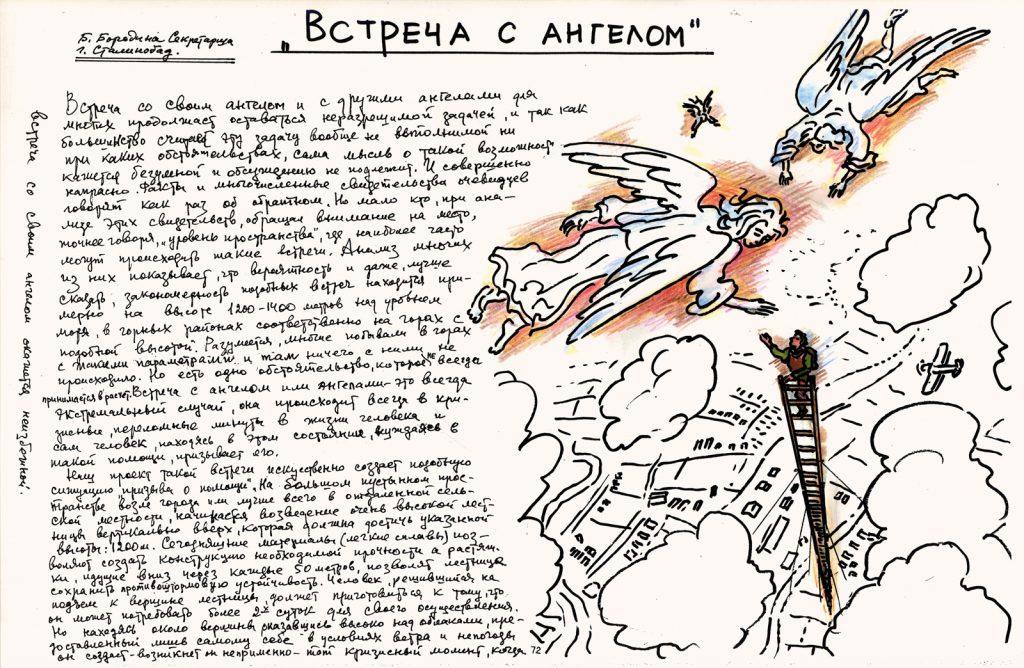 Б. Бородина Секретарша
г. Сталинобад.
„ВСТРЕЧА С АНГЕЛОМ“
Встреча со своим ангелом и с другими ангелами для
многих продолжает оставаться неразрешимой задачей, и так как
большинство считает эту задачу вообще не выполнимой ни
при каких обстоятельствах, сама мысль о такой возможност
кажется безумной и обсуждению не подлежит. И совершенно
напрасно. Факты и многочисленные свидетельства очевидцев
говорят как раз об обратном. Но мало кто, при ана-
лизе этих свидетельств, обращал внимание на место,
точнее говоря, „уровень пространства“, где наиболее часто
могут происходить такие встречи. Анализ многих
из них показывает, что вероятность и даже, лучше
сказать, закономерность подобных встреч находится при-
мерно на высоте 1200-1400 метров над уровнем
моря, в горных районах соответственно на горах с
подобной высотой. Разумеется, многие побывали в горах
с такими параметрами, и там ничего с ними не
происходило. Но есть одно обстоятельство, которое не всегда
принимается в расчет. Встреча с ангелом или ангелами - это всегда
экстремальный случай, она происходит всегда в кри-
зисные, переломные минуты в жизни человека и
сам человек, находясь в этом состоянии, нуждаясь в
такой помощи, призывает его.
Наш проект такой встречи искуственно создает подобную
ситуацию „призыва о помощи“. На большом пустынном прос-
транстве возле города или лучше всего в отдаленной сель-
ской местности, начинается возведение очень высокой лест-
ницы вертикально вверх, которая должна достичь указанной
высоты: 1200м. Сегодняшние материалы (легкие сплавы) поз-
воляют создать конструкцию необходимой прочности а растяж-
ки, идущие вниз через каждые 50 метров, позволят лестнице
сохранить противоштормовую устойчивость. Человек, решившийся на
подъем к вершине лестницы, должет приготовиться к тому, что
он может потребовать более 2х суток для своего осуществления.
Но находясь около вершины, оказавшись высоко над облаками, пре-
доставленный лишь самому себе в условиях ветра и непогоды
он создаст-возникнет он непременно - той кризисный момент, когда
72
встреча со своим ангелом окажется неизбежной.